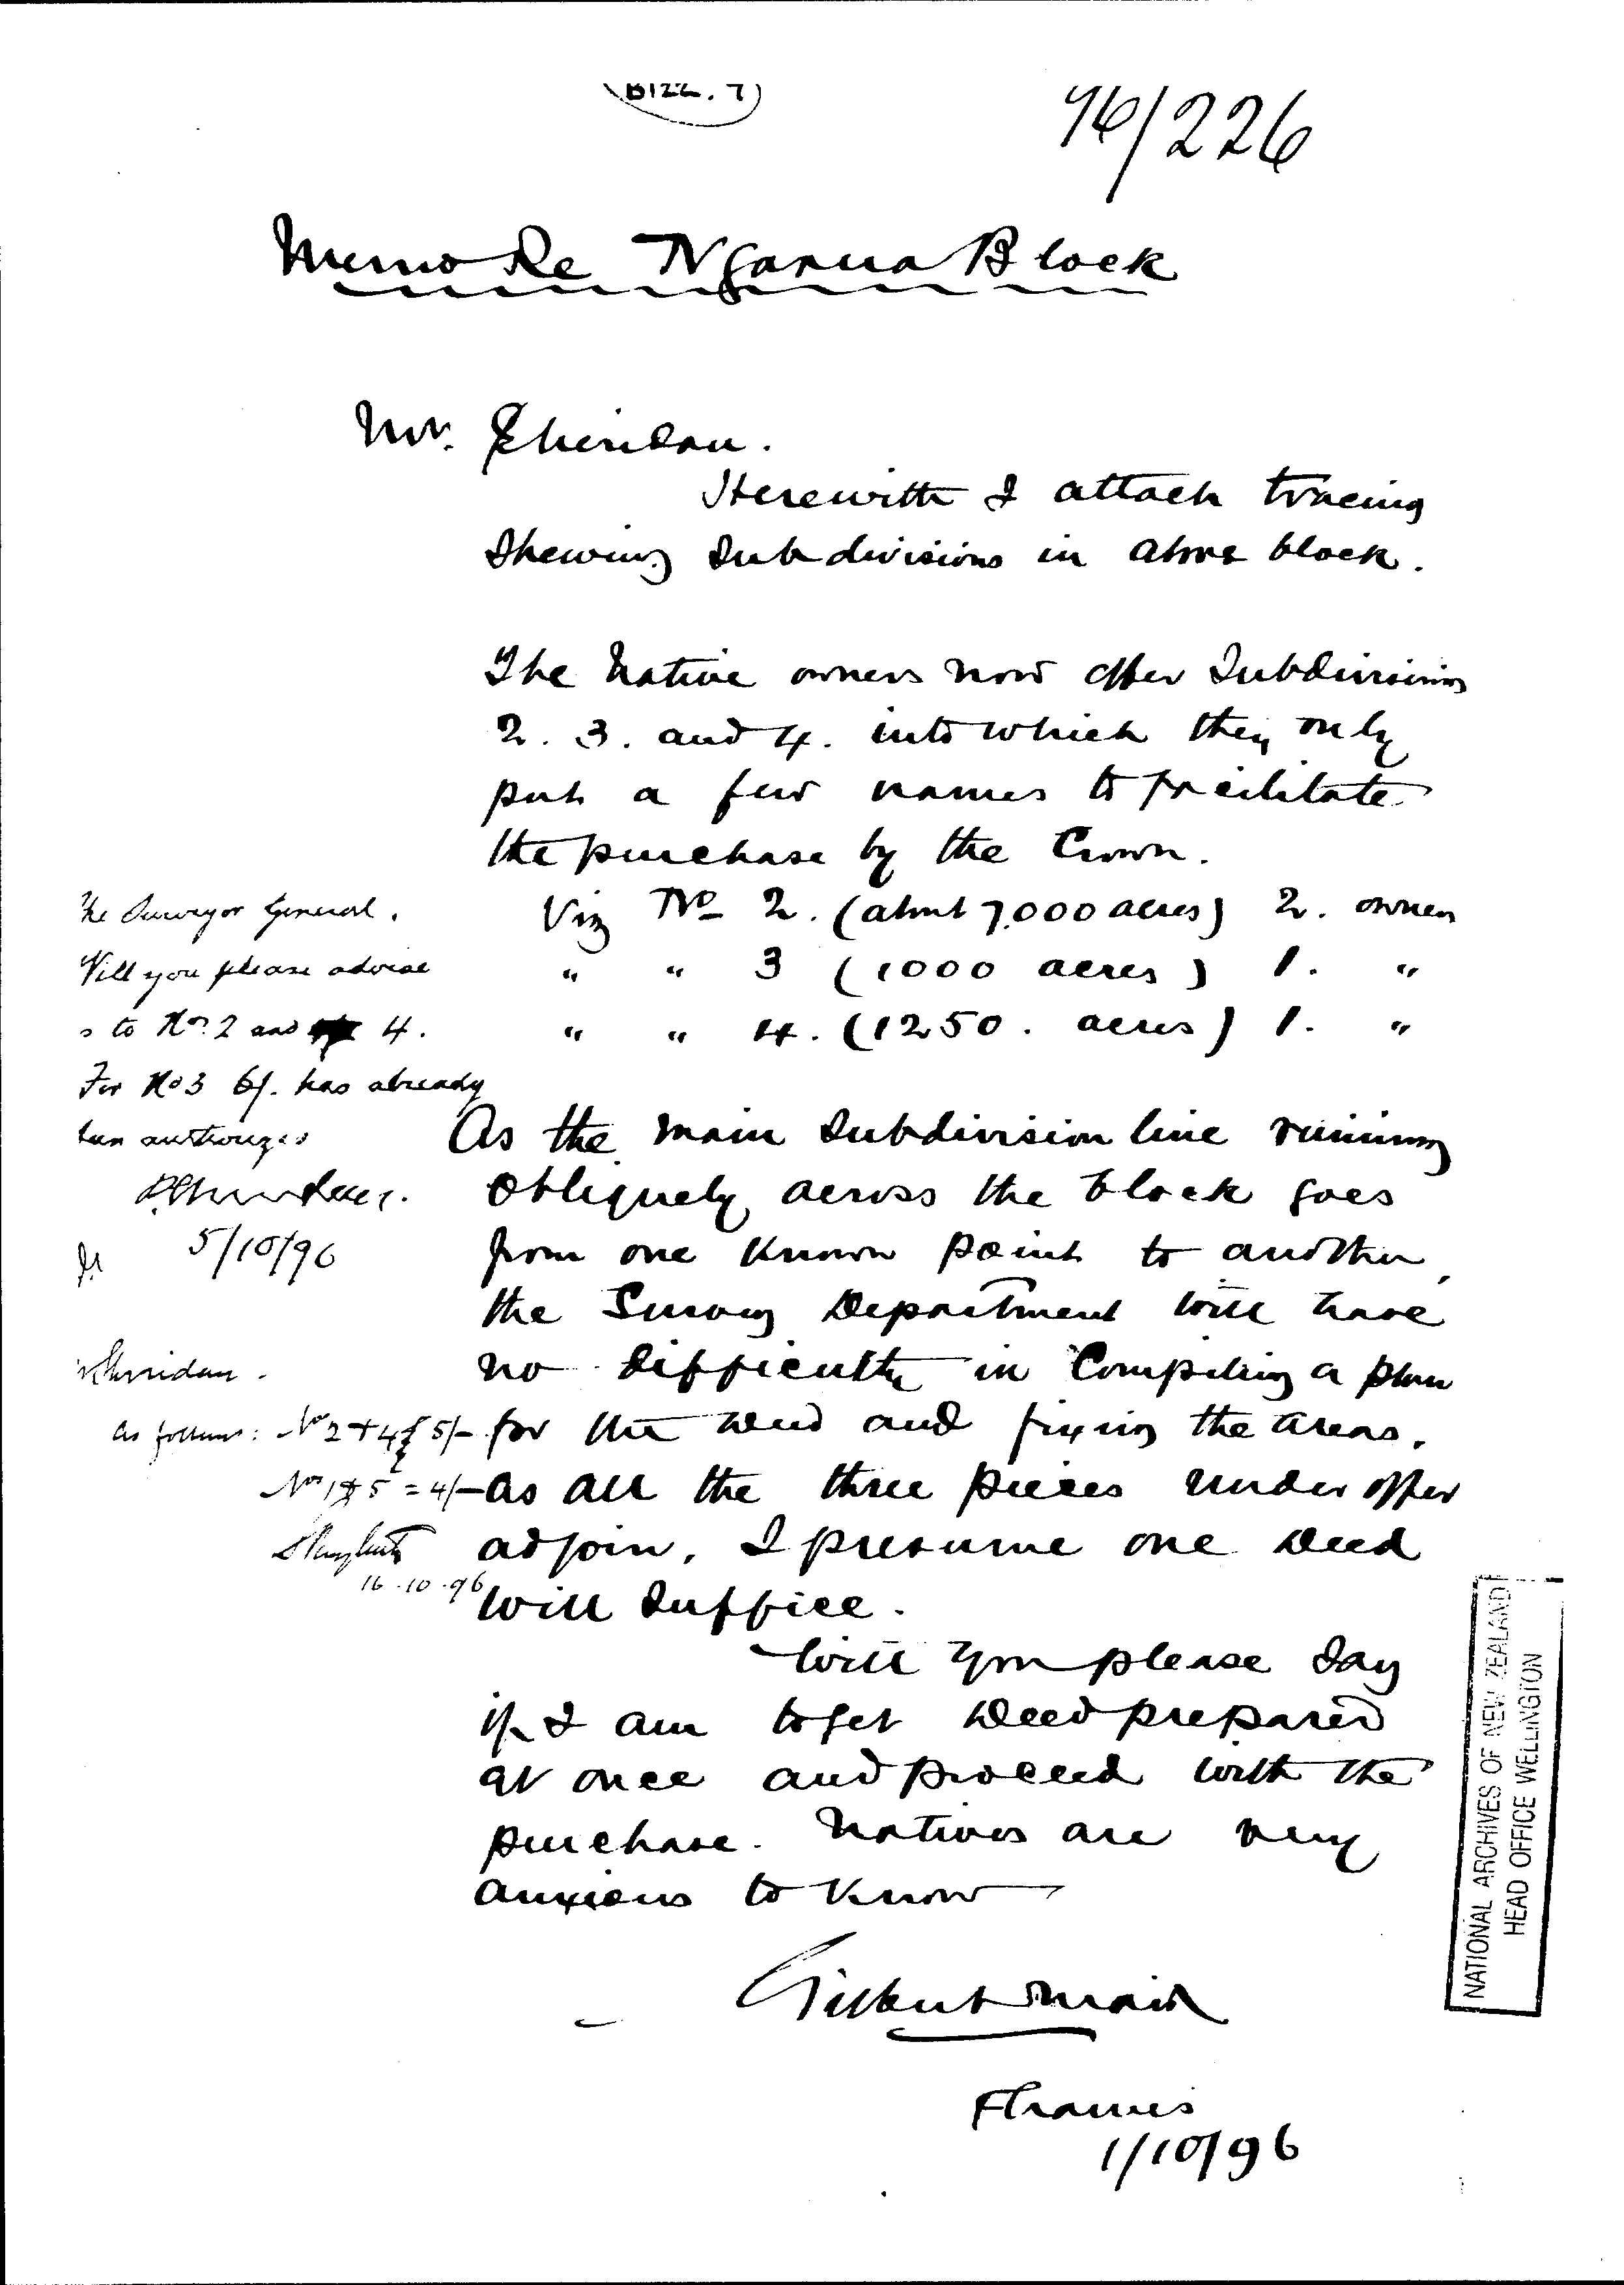 B122. 7
96/226
Memo Re Ngarua Block
Mr. Sheridan.
Herewith I attach tracing
Shewing Subdivisions in above block.
The Native owners now offer Subdivisions
2. 3. and 4. into which they only
put a few names to facilitate
the purchase by the Crown.
Viz No 2. (about 7,000 acres) 2. owners
" " 3 (1000 acres) 1. "
" " 4. (1250. acres) 1. "
As the main Subdivision line running
obliquely across the block goes
from one known point to another,
the Survey Department will have
no difficulty in Compiling a plan
for the deed and fixing the areas.
As all the three pieces under offer
adjoin, I presume one deed
will suffice.
Will you please say
if I am to get deed prepared
at once and proceed with the
purchase. Natives are very
anxious to know
Gilbert Mair
Thames
1/10/96
The Surveyor General.
Will you please advise
s to Nos. 2 and 4.
For No 3 6/. has already
been authorized
P. Sheridan.
5/10/96
Sheridan.
As follows: Nos 2 + 4 5/-
Nos 1 & 5 = 4/-
16.10.96
NATIONAL ARCHIVES OF NEW ZEALAND
HEAD OFFICE WELLINGTON